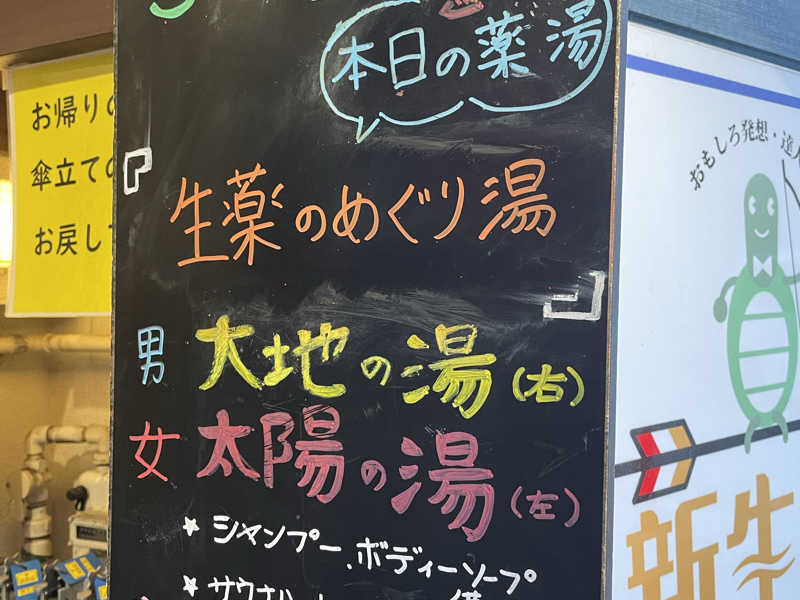 本日の薬湯
『生薬のめぐり湯』
男 大地の湯(右)
女 太陽の湯(左)
★シャンプー、ボディーソープ
★サウナ
お帰りの
傘立ての
お戻し
おもしろ発想・達人
新生